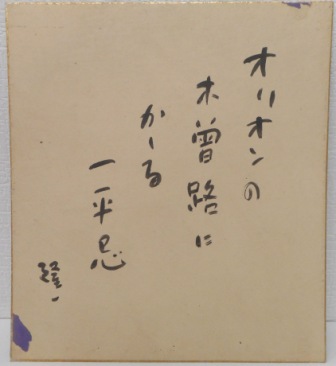 オリオンの
木曽路に
かゝる
一平忌